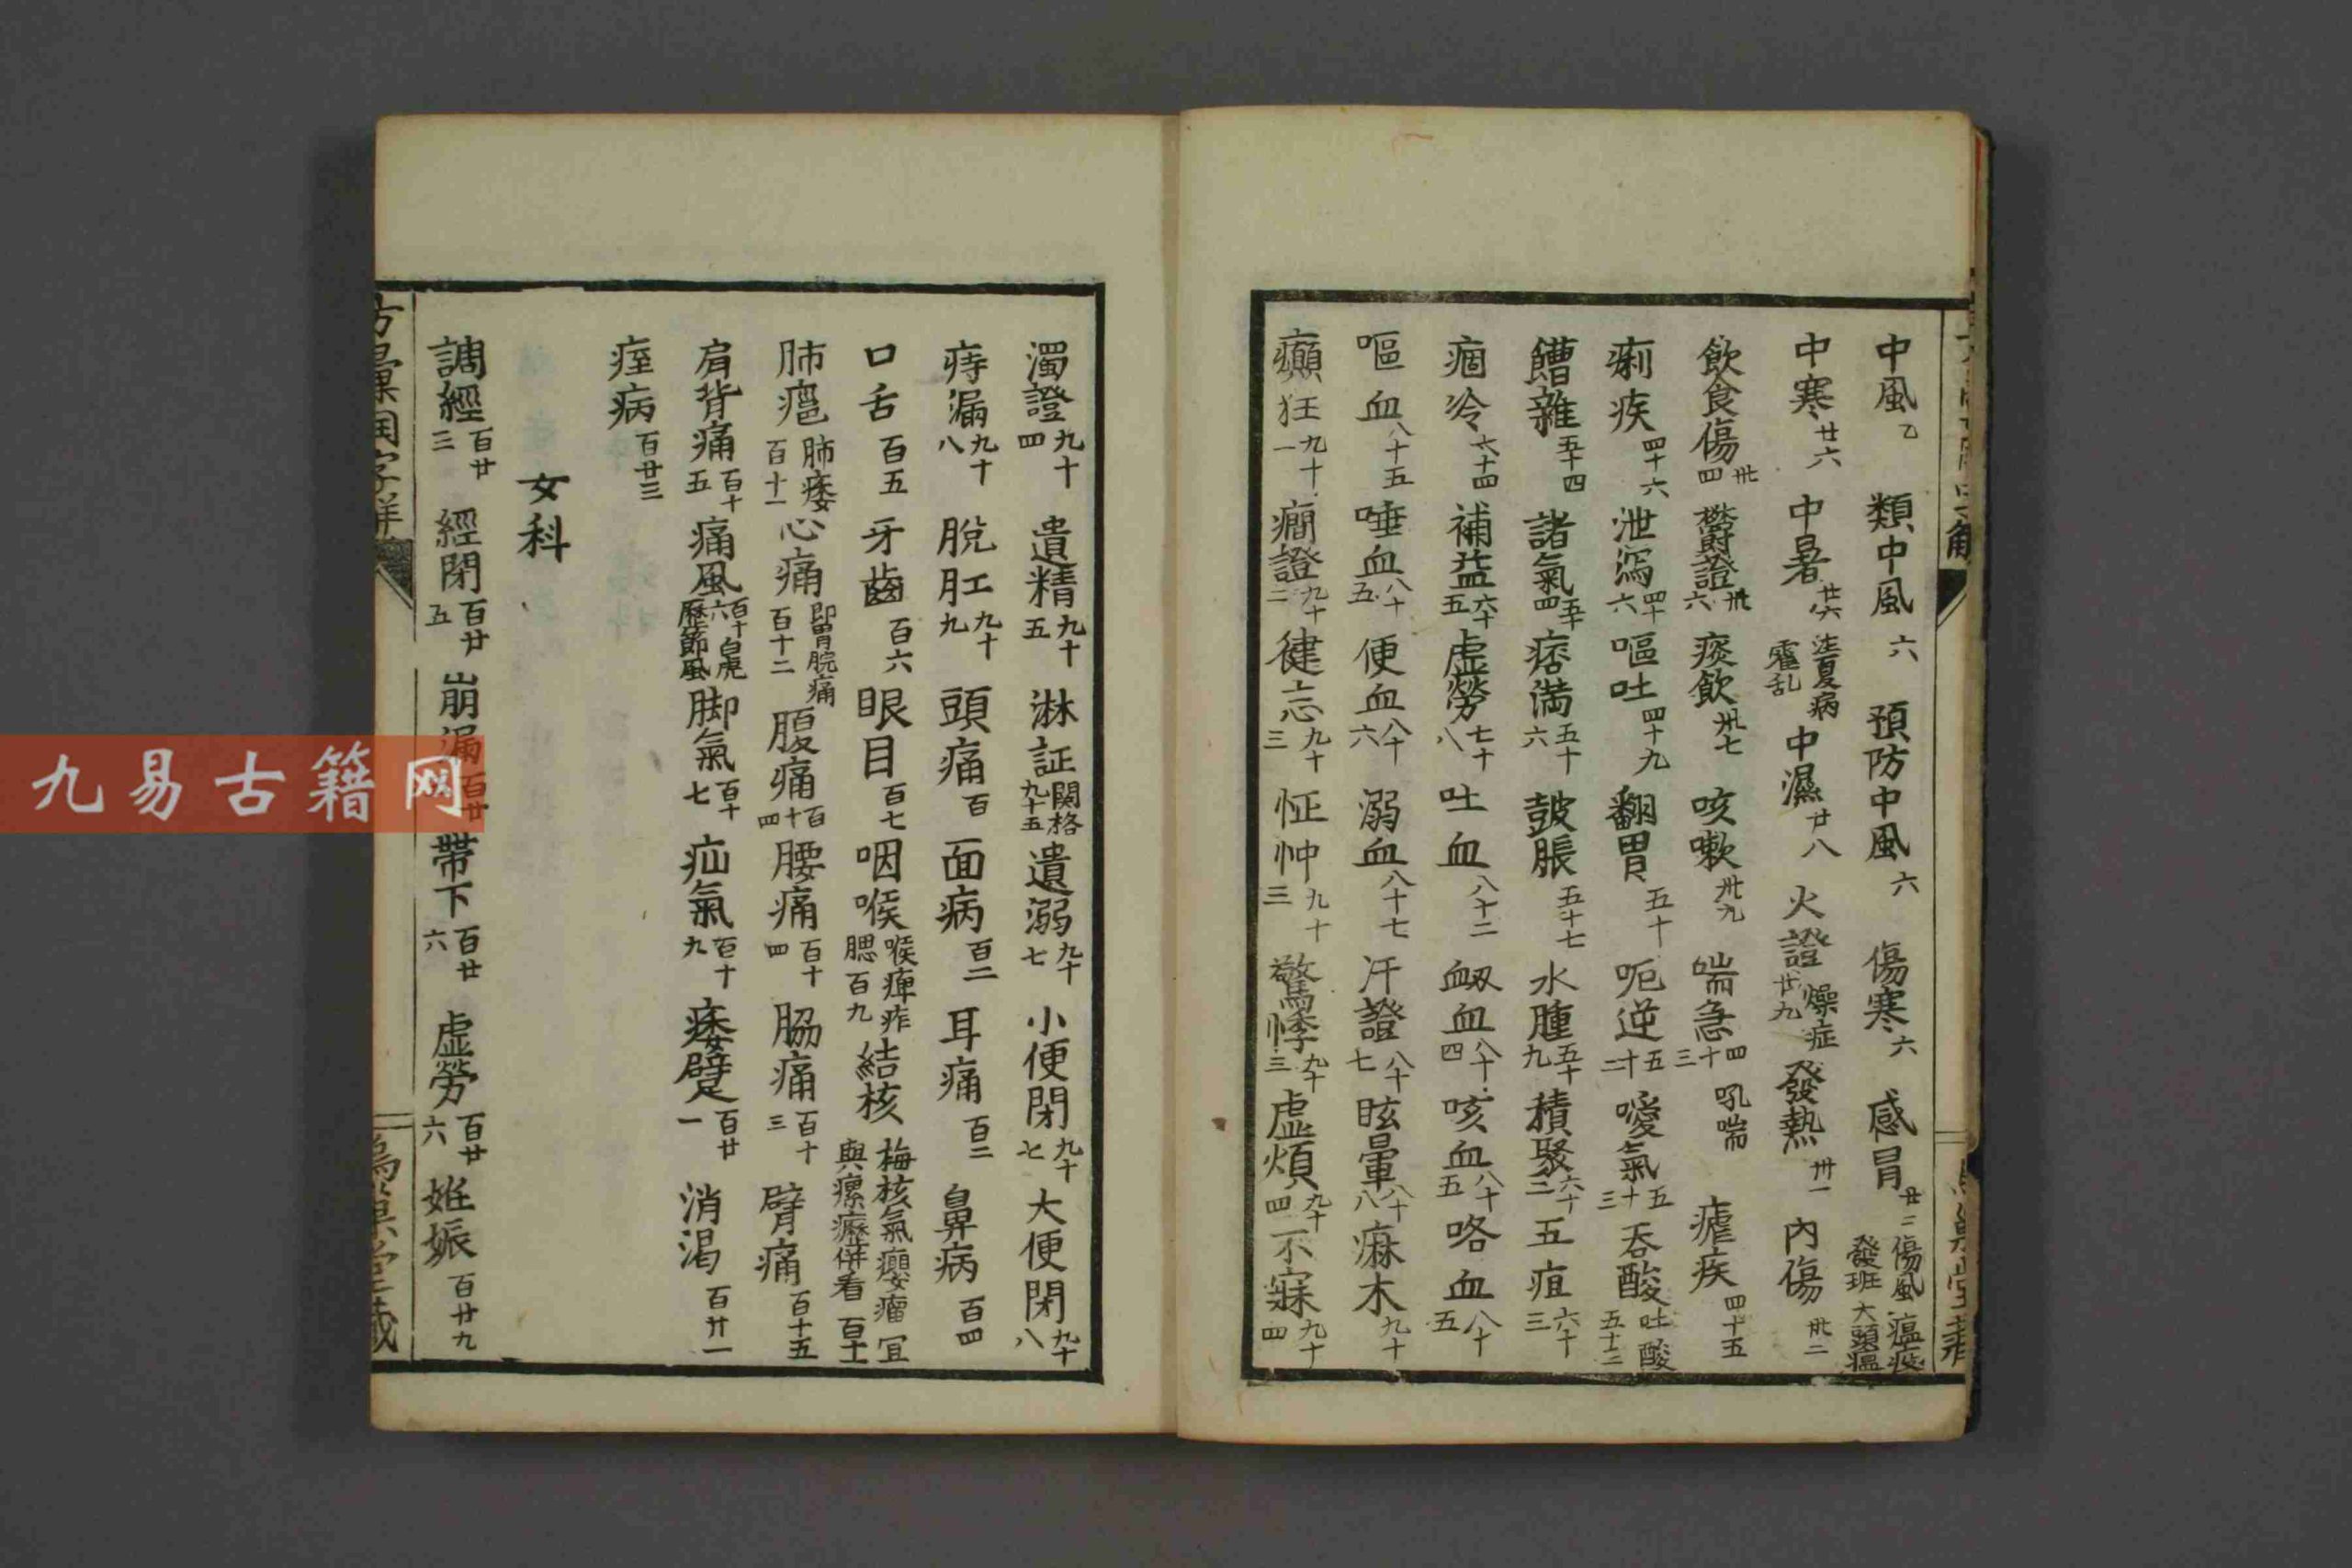 中風 乙 類中風 六 預防中風 六 傷寒 六 感冒 廿二 傷風 瘟疫 發班 大頭瘟
中寒 廿六 中暑 廿六 注夏病 霍乱 中濕 廿八 火證 燥症 廿九 發熱 卅一 內傷 卅二
飲食傷 卅四 欝證 卅六 痰飲 卅七 咳嗽 卅九 喘急 四十三 吼喘 瘧疾 四十五
痢疾 四十六 泄瀉 四十六 嘔吐 四十九 翻胃 五十 呃逆 五十二 噯氣 五十三 吞酸 吐酸 五十三
饋雜 五十四 諸氣 五十四 痞満 五十六 鼓脹 五十七 水腫 五十九 積聚 六十二 五疸 六十三
痼冷 六十四 補益 六十五 虛勞 七十八 吐血 八十二 衂血 八十四 咳血 八十五 咯血 八十五
嘔血 八十五 唾血 八十五 便血 八十六 溺血 八十七 汗證 八十七 眩暈 八十八 痳木 九十
癲狂 九十一 癇證 九十二 健忘 九十三 怔忡 九十三 驚悸 九十三 虛煩 九十四 不寐 九十四
濁證 九十四 遺精 九十五 淋証 関格 九十五 遺溺 九十七 小便閉 九十七 大便閉 九十八
痔漏 九十八 脫肛 九十九 頭痛 百 面病 百二 耳痛 百二 鼻病 百四
口舌 百五 牙齒 百六 眼目 百七 咽喉 喉痺 痄腮 百九 結核 梅核氣 癭瘤 冝與瘰癧併看 百十
肺癰 肺痿 百十一 心痛 即胃脘痛 百十二 腹痛 百十四 腰痛 百十四 脇痛 百十三 臂痛 百十五
肩背痛 百十五 痛風 百十六 白虎歷節風 脚氣 百十七 疝氣 百十九 痿躄 百廿一 消渴 百廿一
痓病 百廿三
女科
調經 百廿三 經閉 百廿五 崩漏 百廿 帶下 百廿六 虛勞 百廿六 妊娠 百廿九
九易古籍网